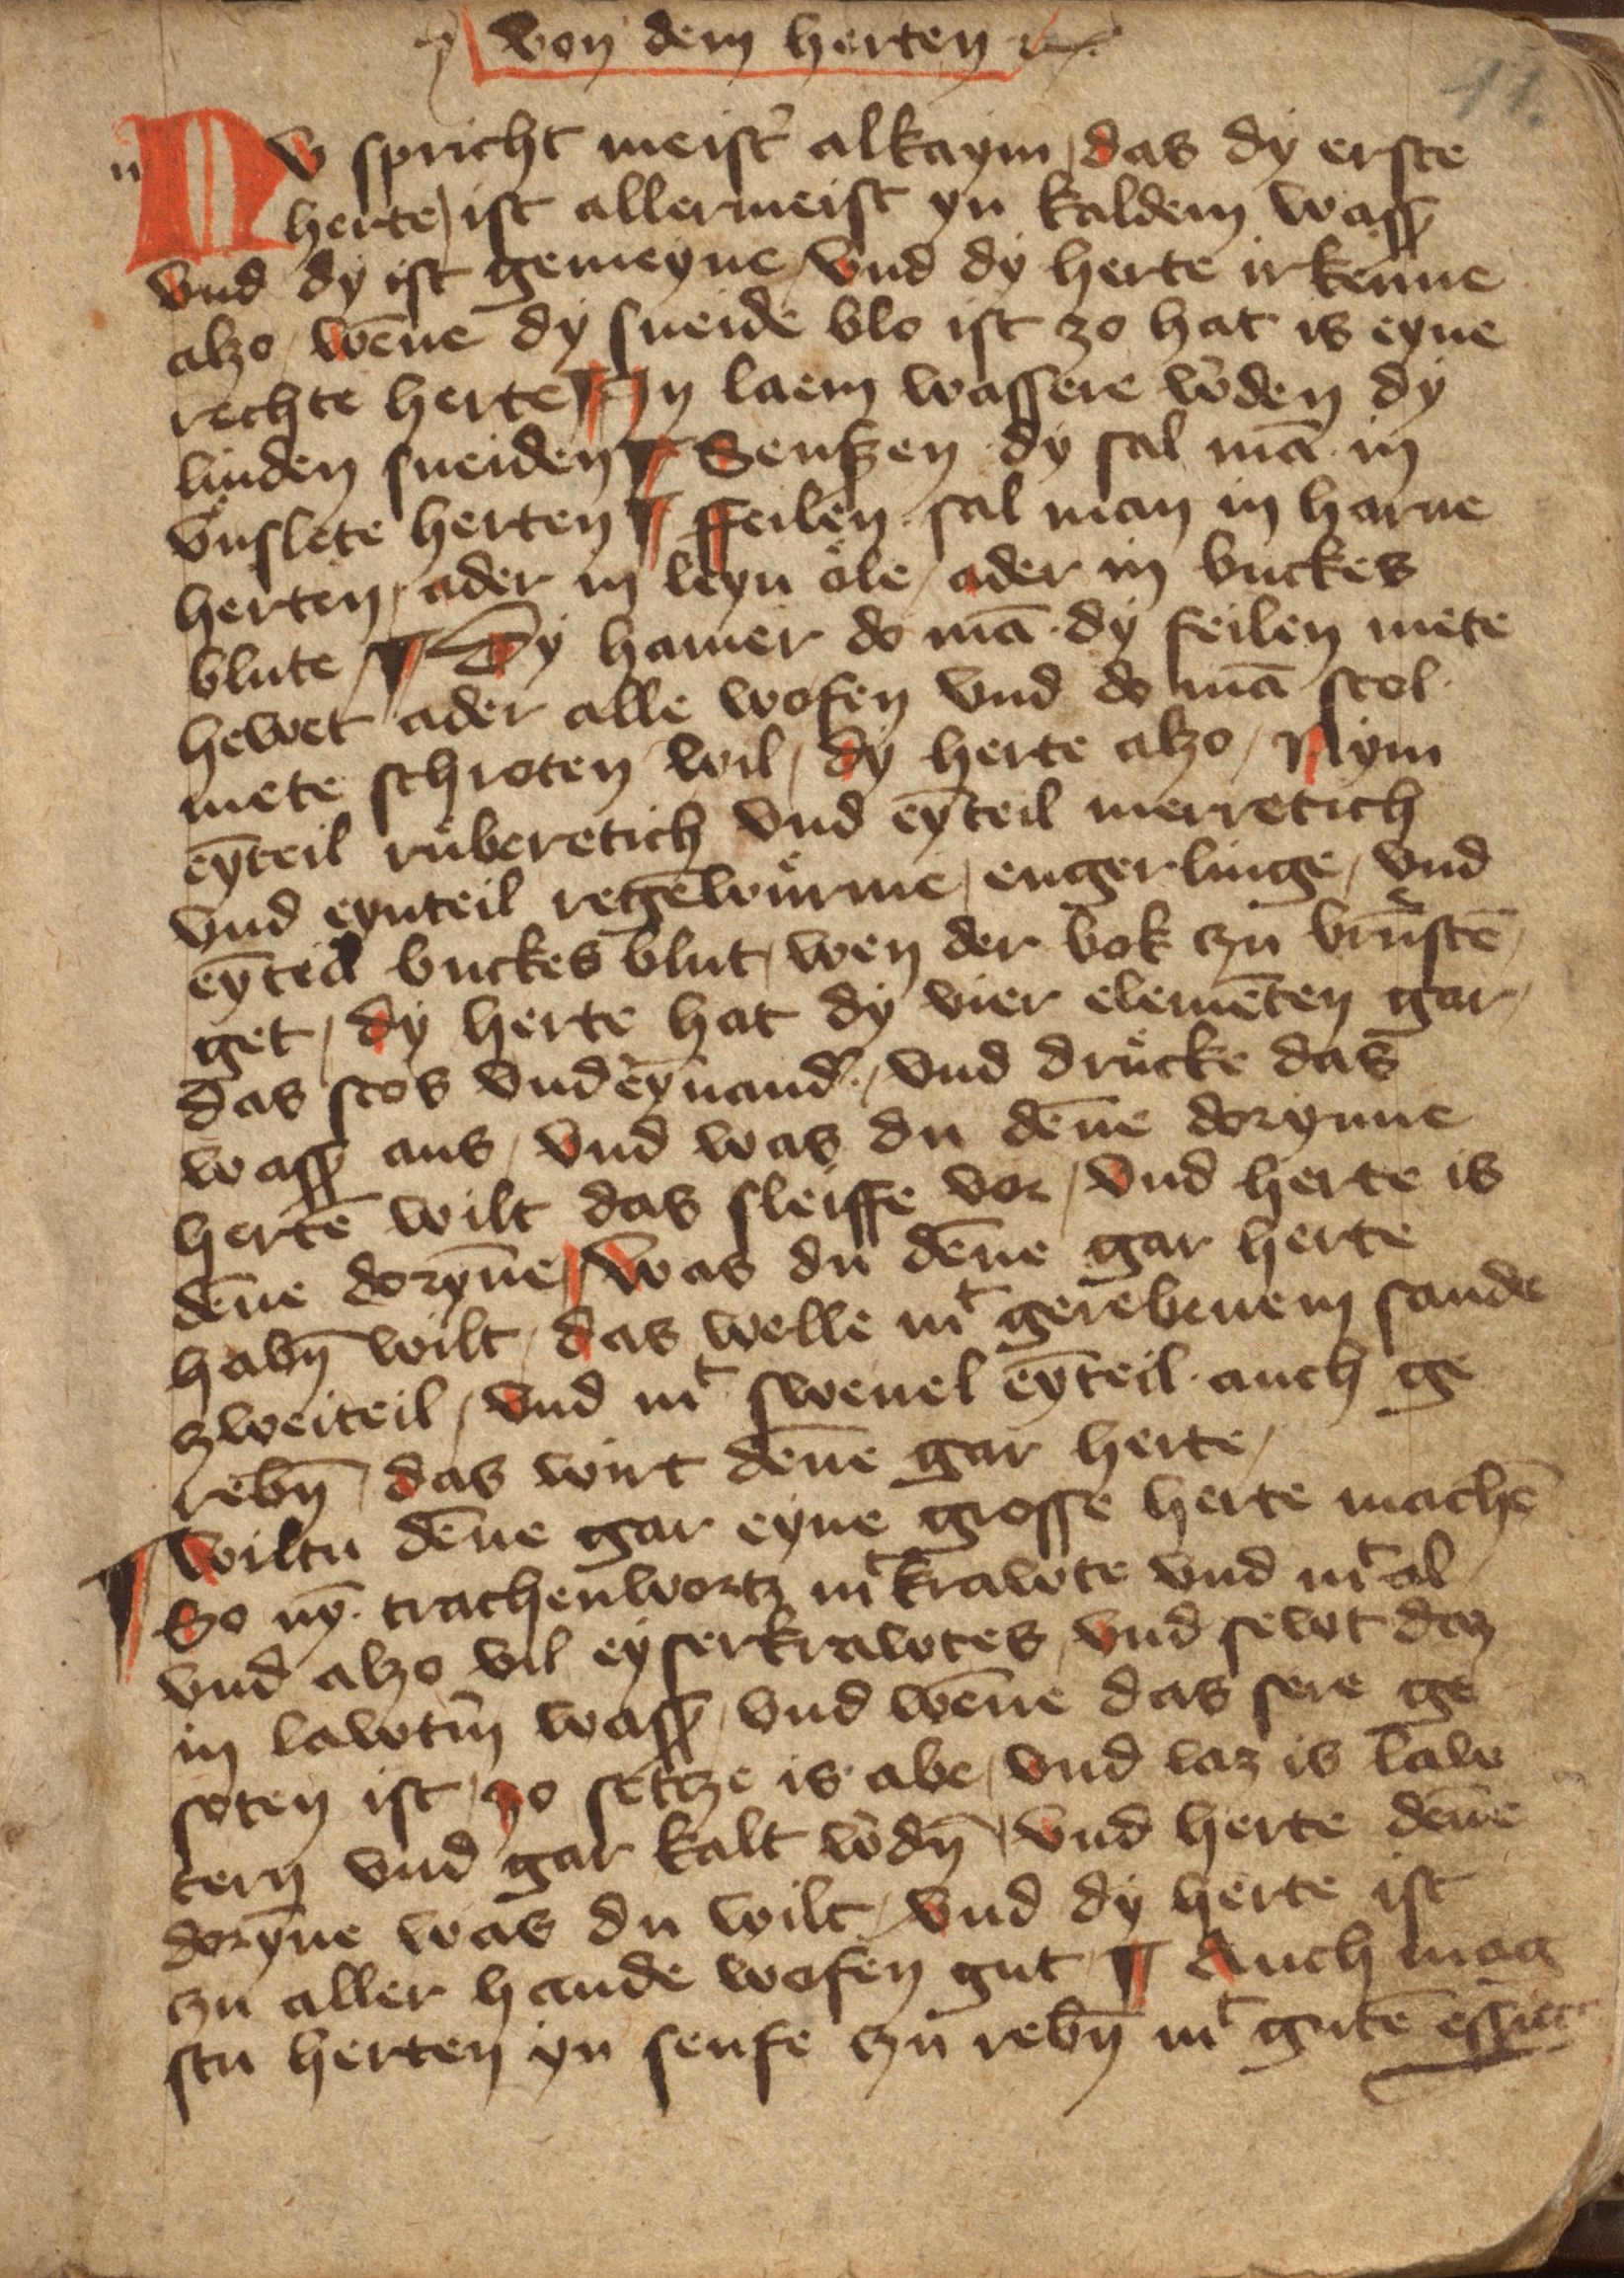 von dem herten ꝛc.
11.
n
NW spricht meist̓ alkaym / das dy erste
herte / ist allermeist yn kaldem wass̓
vnd dy ist gemeyne / vnd dy herte irkenne
alzo / wēne dy sneide blo ist zo hat is eyne
rechte herte ¶ In laem wassere w̓den dy
linden sneiden ¶ Senszen dy sal mā in
vnslete herten ¶ ffeilen sal man in harne
herten / ader in leyn öle / ader in buckes
blute / ¶ Dy hamer do mā dy feilen mete
hewet ader alle wofen vnd do mā stol
mete schroten wil / dy herte alzo / Nym
eȳteil rüberetich vnd eȳteil merretich
vnd eynteil regēwürme / engerlinge / vnd
eȳteil buckes blut / wen der bok zu brünstē
get / dy herte hat dy vier elemēten gar /
das stos vnd̓eynand̓ / vnd drücke das
wass̓ aus / vnd was du dēne dorynne
hertē wilt das sleiffe vor / vnd herte is
dēne dorȳne / Was du dēne gar herte
habn̄ wilt / das welle mᵗ gerebenem sande
zweiteil / vnd mᵗ sweuel eȳteil auch ge
rebn̄ / das wirt dēne gar herte /
¶ Wiltu dēne gar eyne grosse herte machē
So nȳ trachenwortz mᵗ krawte vnd mᵗ al
vnd alzo vil eyserkrawtes / vnd sewt daz
in lawt̓m wass̓ / vnd wēne das sere ge
soten ist / zo setcze is abe / vnd laz is law
tern vnd gar kalt w̓dn̄ / vnd herte dēne
dorȳne was du wilt / vnd dy herte ist
zu aller hande wofen gut ¶ Auch mag
stu herten yn senfe zu rebn̄ mᵗ gutē essice